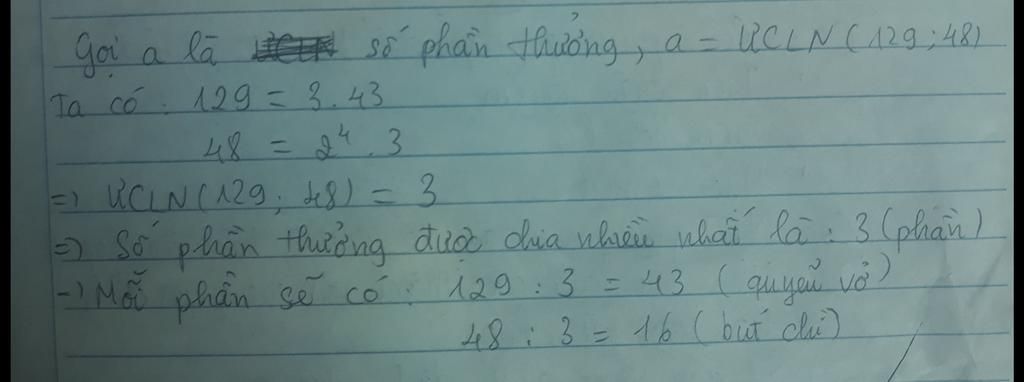 Gọi a là số phần thưởng, a = ƯCLN (129 ; 48)
Ta có : 129 = 3 . 43
48 = 2⁴ . 3
=> ƯCLN (129 ; 48) = 3
=> Số phần thưởng được chia nhiều nhất là : 3 (phần)
-> Mỗi phần sẽ có : 129 : 3 = 43 ( quyển vở )
48 : 3 = 16 ( bút chì )